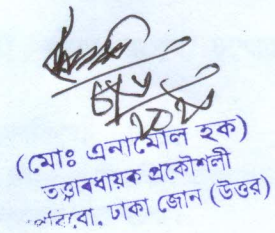 (মোঃ এনামোল হক)
তত্ত্বাবধায়ক প্রকৌশলী
পবিবো, ঢাকা জোন (উত্তর)